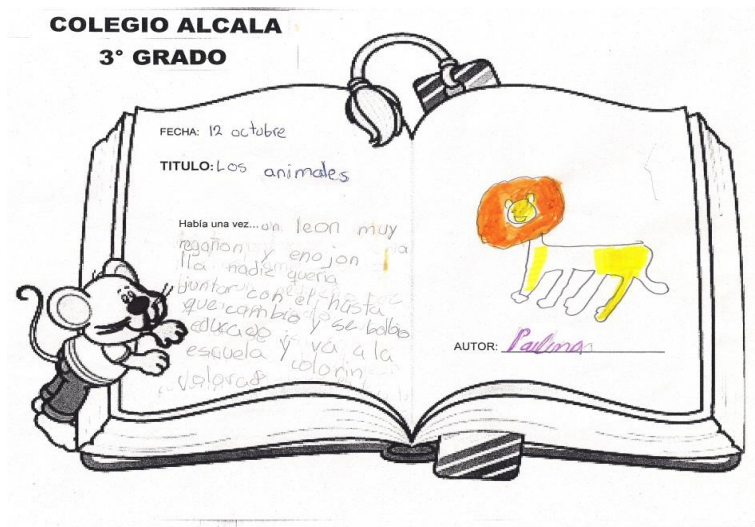 COLEGIO ALCALA
3° GRADO
FECHA: 12 octubre
TITULO: Los animales
Había una vez... un leon muy
regañon y enojon
lla nadie queria
juntar con el hasta
que cambio y se bolbio
educado y va a la
escuela y colorin
AUTOR: Paulina